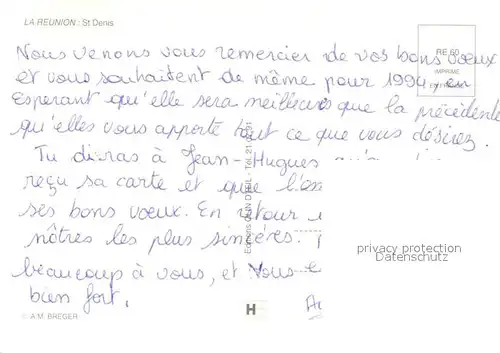 LA REUNION : St Denis
RE 60
IMPRIME
Nous venons vous remercier de vos bons voeux
et vous souhaitent de même pour 1994, en
esperant qu'elle sera meilleure que la précédente
qu'elles vous apporte tout ce que vous désirez.
Tu diras à Jean-Hugues
reçu sa carte et que l'on
ses bons voeux. En retour
nôtres les plus sincères.
beaucoup à vous, et Vous
bien fort.
privacy protection
Datenschutz
© A.M. BREGER
H